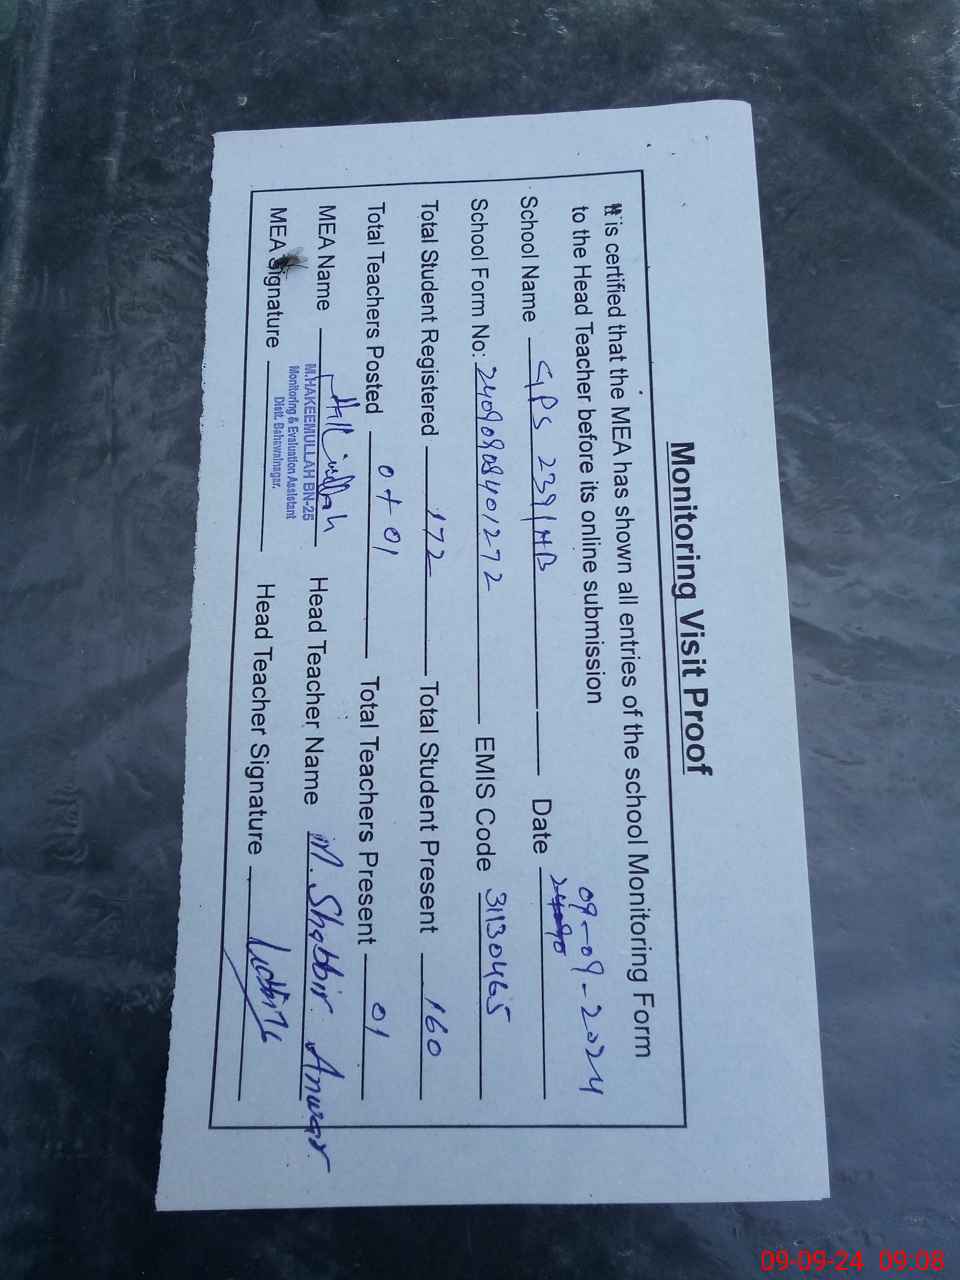 Monitoring Visit Proof
It is certified that the MEA has shown all entries of the school Monitoring Form
to the Head Teacher before its online submission
School Name GPS 239/HB Date 09-09-2024
School Form No: 24090908401272 EMIS Code 31130465
Total Student Registered 172 Total Student Present 160
Total Teachers Posted 0+01 Total Teachers Present 01
MEA Name Head Teacher Name M. Shabbir Anwar
M.HAKEEMULLAH BN-25
Monitoring & Evaluation Assistant
Distt. Bahawalnagar.
MEA Signature Head Teacher Signature
09-09-24 09:08